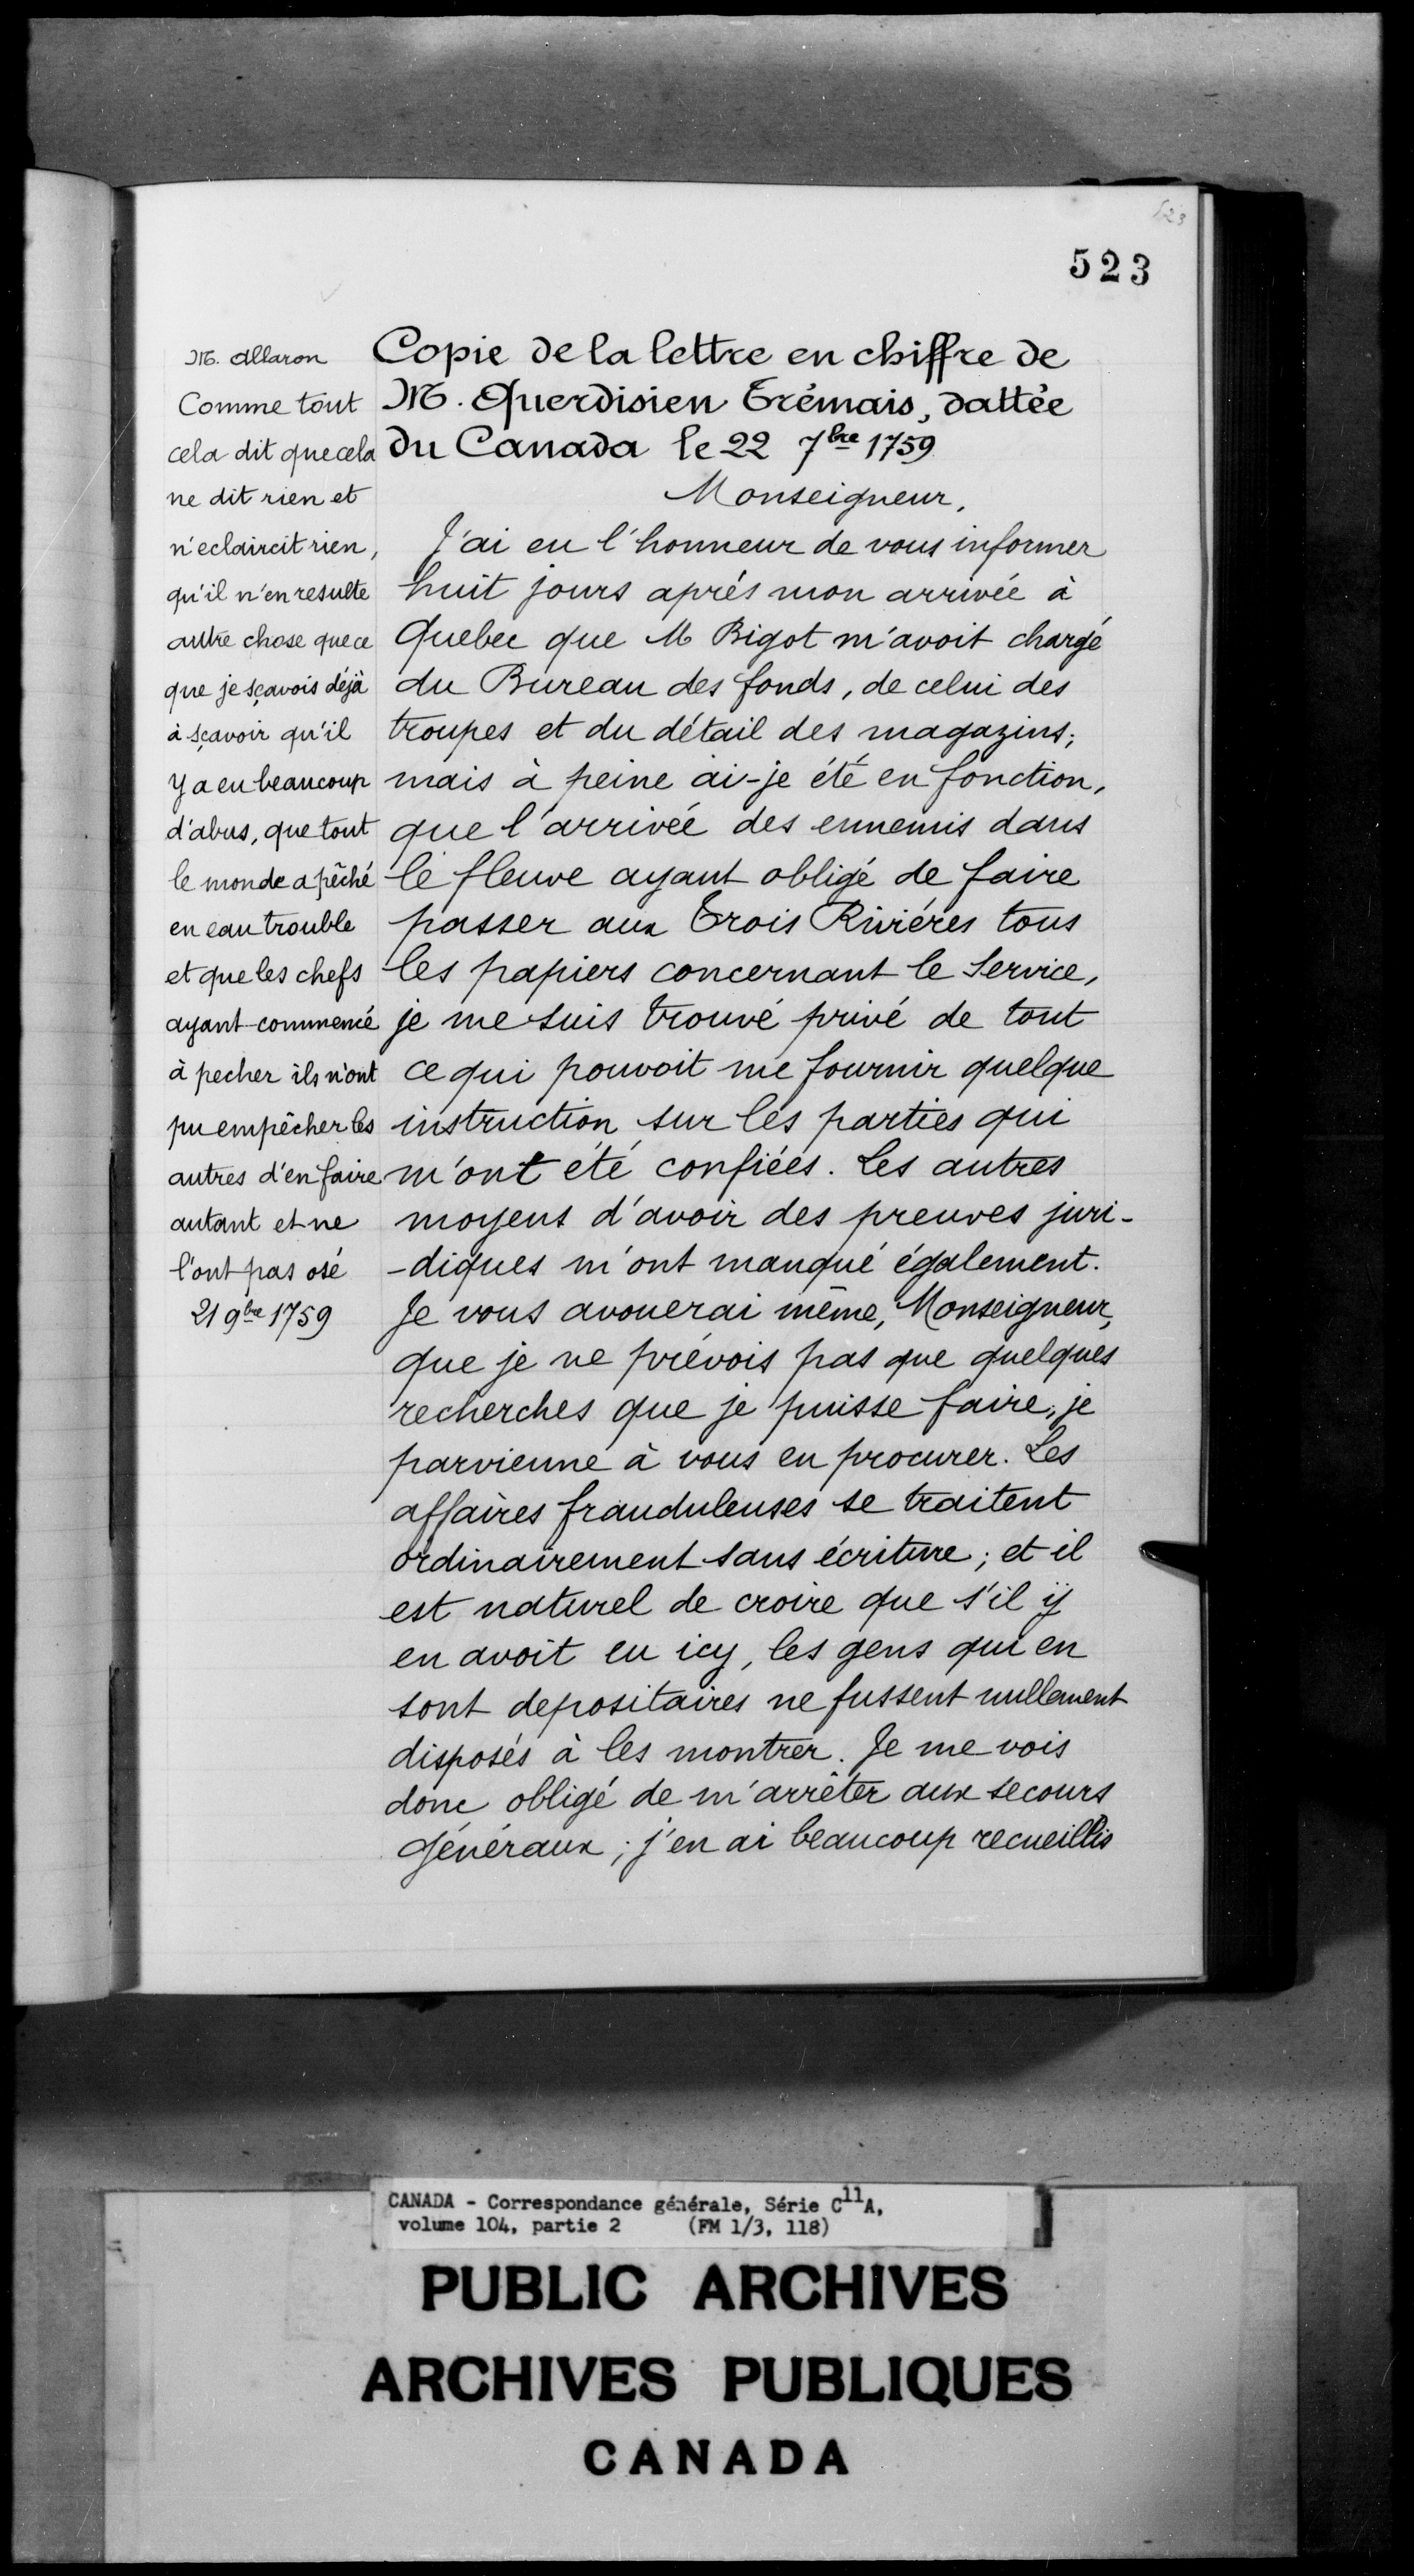 523
523
M. Allaron
Comme tout
cela dit que cela
ne dit rien et
n'eclaircit rien,
qu'il n'en resulte
autre chose que ce
que je sçavois déjà
à sçavoir qu'il
y a eu beaucoup
d'abus, que tout
le monde a pêché
en eau trouble
et que les chefs
ayant commencé
à pecher ils n'ont
pu empêcher les
autres d'en faire
autant et ne
l'ont pas osé
21 9bre 1759
Copie de la lettre en chiffre de
M. Querdisien Trémais, dattée
du Canada le 22 7bre 1759
Monseigneur,
J'ai eu l'honneur de vous informer
huit jours aprés mon arrivée à
Quebec que M Bigot m'avoit chargé
du Bureau des fonds, de celui des
troupes et du détail des magazins;
mais à peine ai-je été en fonction,
que l'arrivée des ennemis dans
le fleuve ayant obligé de faire
passer aux Trois Riviéres tous
les papiers concernant le Service,
je me suis trouvé privé de tout
ce qui pouvoit me fournir quelque
instruction sur les parties qui
m'ont été confiées. Les autres
moyens d'avoir des preuves juri-
-diques m'ont manqué également.
Je vous avouerai même, Monseigneur,
que je ne prévois pas que quelques
recherches que je puisse faire, je
parvienne à vous en procurer. Les
affaires frauduleuses se traitent
ordinairement sans écriture; et il
est naturel de croire que s'il ÿ
en avoit eu icy, les gens qui en
sont depositaires ne fussent nullement
disposés à les montrer. Je me vois
donc obligé de m'arrêter aux secours
généraux; j'en ai beaucoup recueillis
CANADA - Correspondance générale, Série C11A,
volume 104, partie 2 (FM 1/3, 118)
PUBLIC ARCHIVES
ARCHIVES PUBLIQUES
CANADA